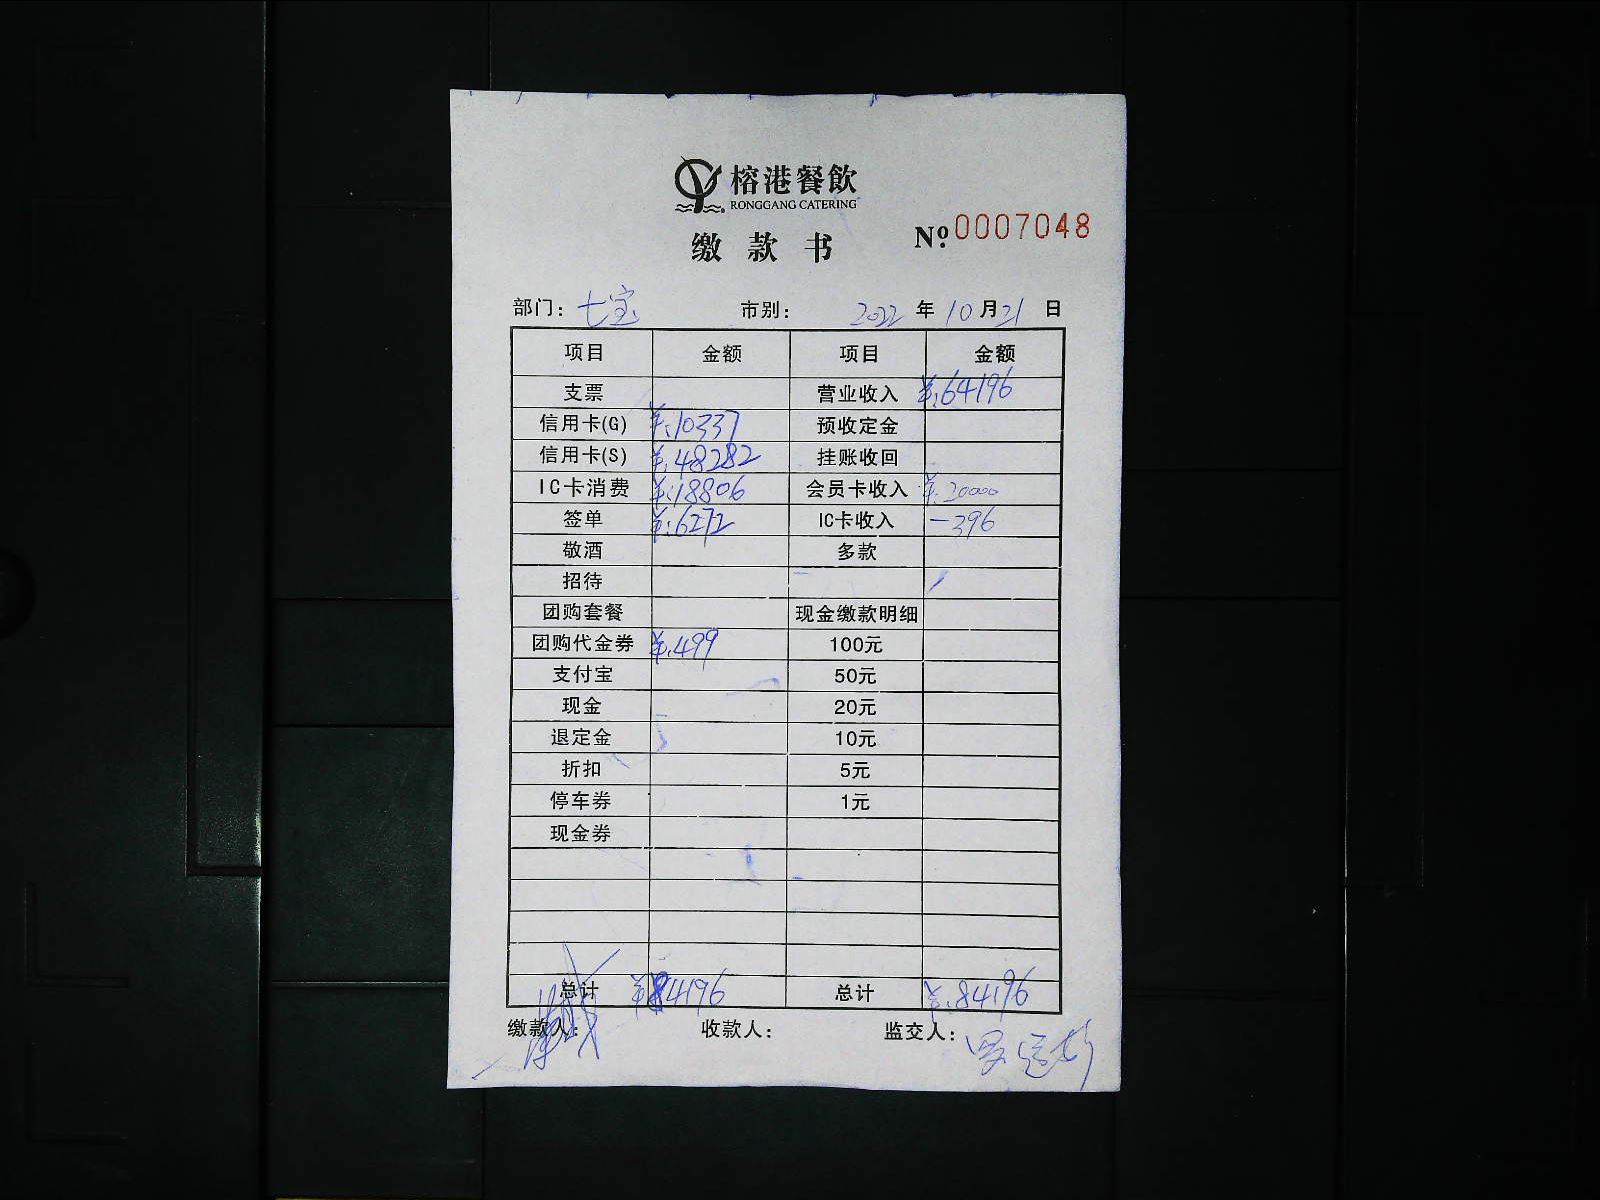 榕港餐飲
RONGGANG CATERING
缴款书 Nº.0007048
部门: 七宝 市别: 2022年10月21日
项目 金额 项目 金额
支票 营业收入 ¥:64196
信用卡(G) ¥:10337 预收定金
信用卡(S) ¥:48282 挂账收回
IC卡消费 ¥:18806 会员卡收入 ¥:20000
签单 ¥:6272 IC卡收入 -396
敬酒 多款
招待
团购套餐 现金缴款明细
团购代金券 ¥:499 100元
支付宝 50元
现金 20元
退定金 10元
折扣 5元
停车券 1元
现金券
总计 ¥84196 总计 ¥:84196
缴款人: 收款人: 监交人: